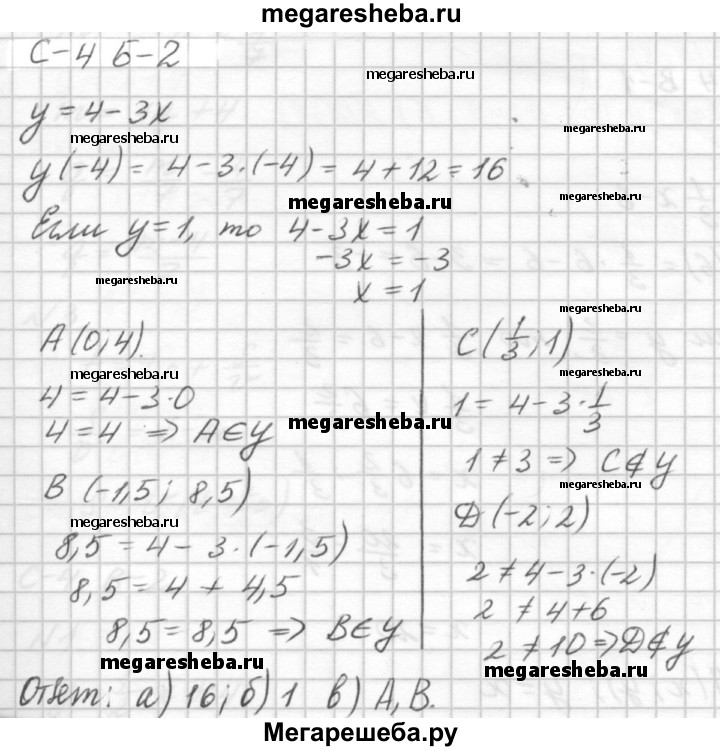 megaresheba.ru
С-4 Б-2
megaresheba.ru
y = 4 - 3x
megaresheba.ru
megaresheba.ru
y(-4) = 4 - 3·(-4) = 4 + 12 = 16
megaresheba.ru
Если y = 1, то 4 - 3x = 1
-3x = -3
megaresheba.ru
x = 1
A(0; 4).
megaresheba.ru
4 = 4 - 3·0
megaresheba.ru
4 = 4 => A∈y
B (-1,5; 8,5)
megaresheba.ru
8,5 = 4 - 3·(-1,5)
8,5 = 4 + 4,5
8,5 = 8,5 => B∈y
megaresheba.ru
C(1/3; 1)
megaresheba.ru
1 = 4 - 3·1/3
1 ≠ 3 => C∉y
megaresheba.ru
D(-2; 2)
2 ≠ 4 - 3·(-2)
2 ≠ 4 + 6
2 ≠ 10 => D∉y
megaresheba.ru
Ответ: а) 16; б) 1 в) A, B.
Мегарешеба.ру